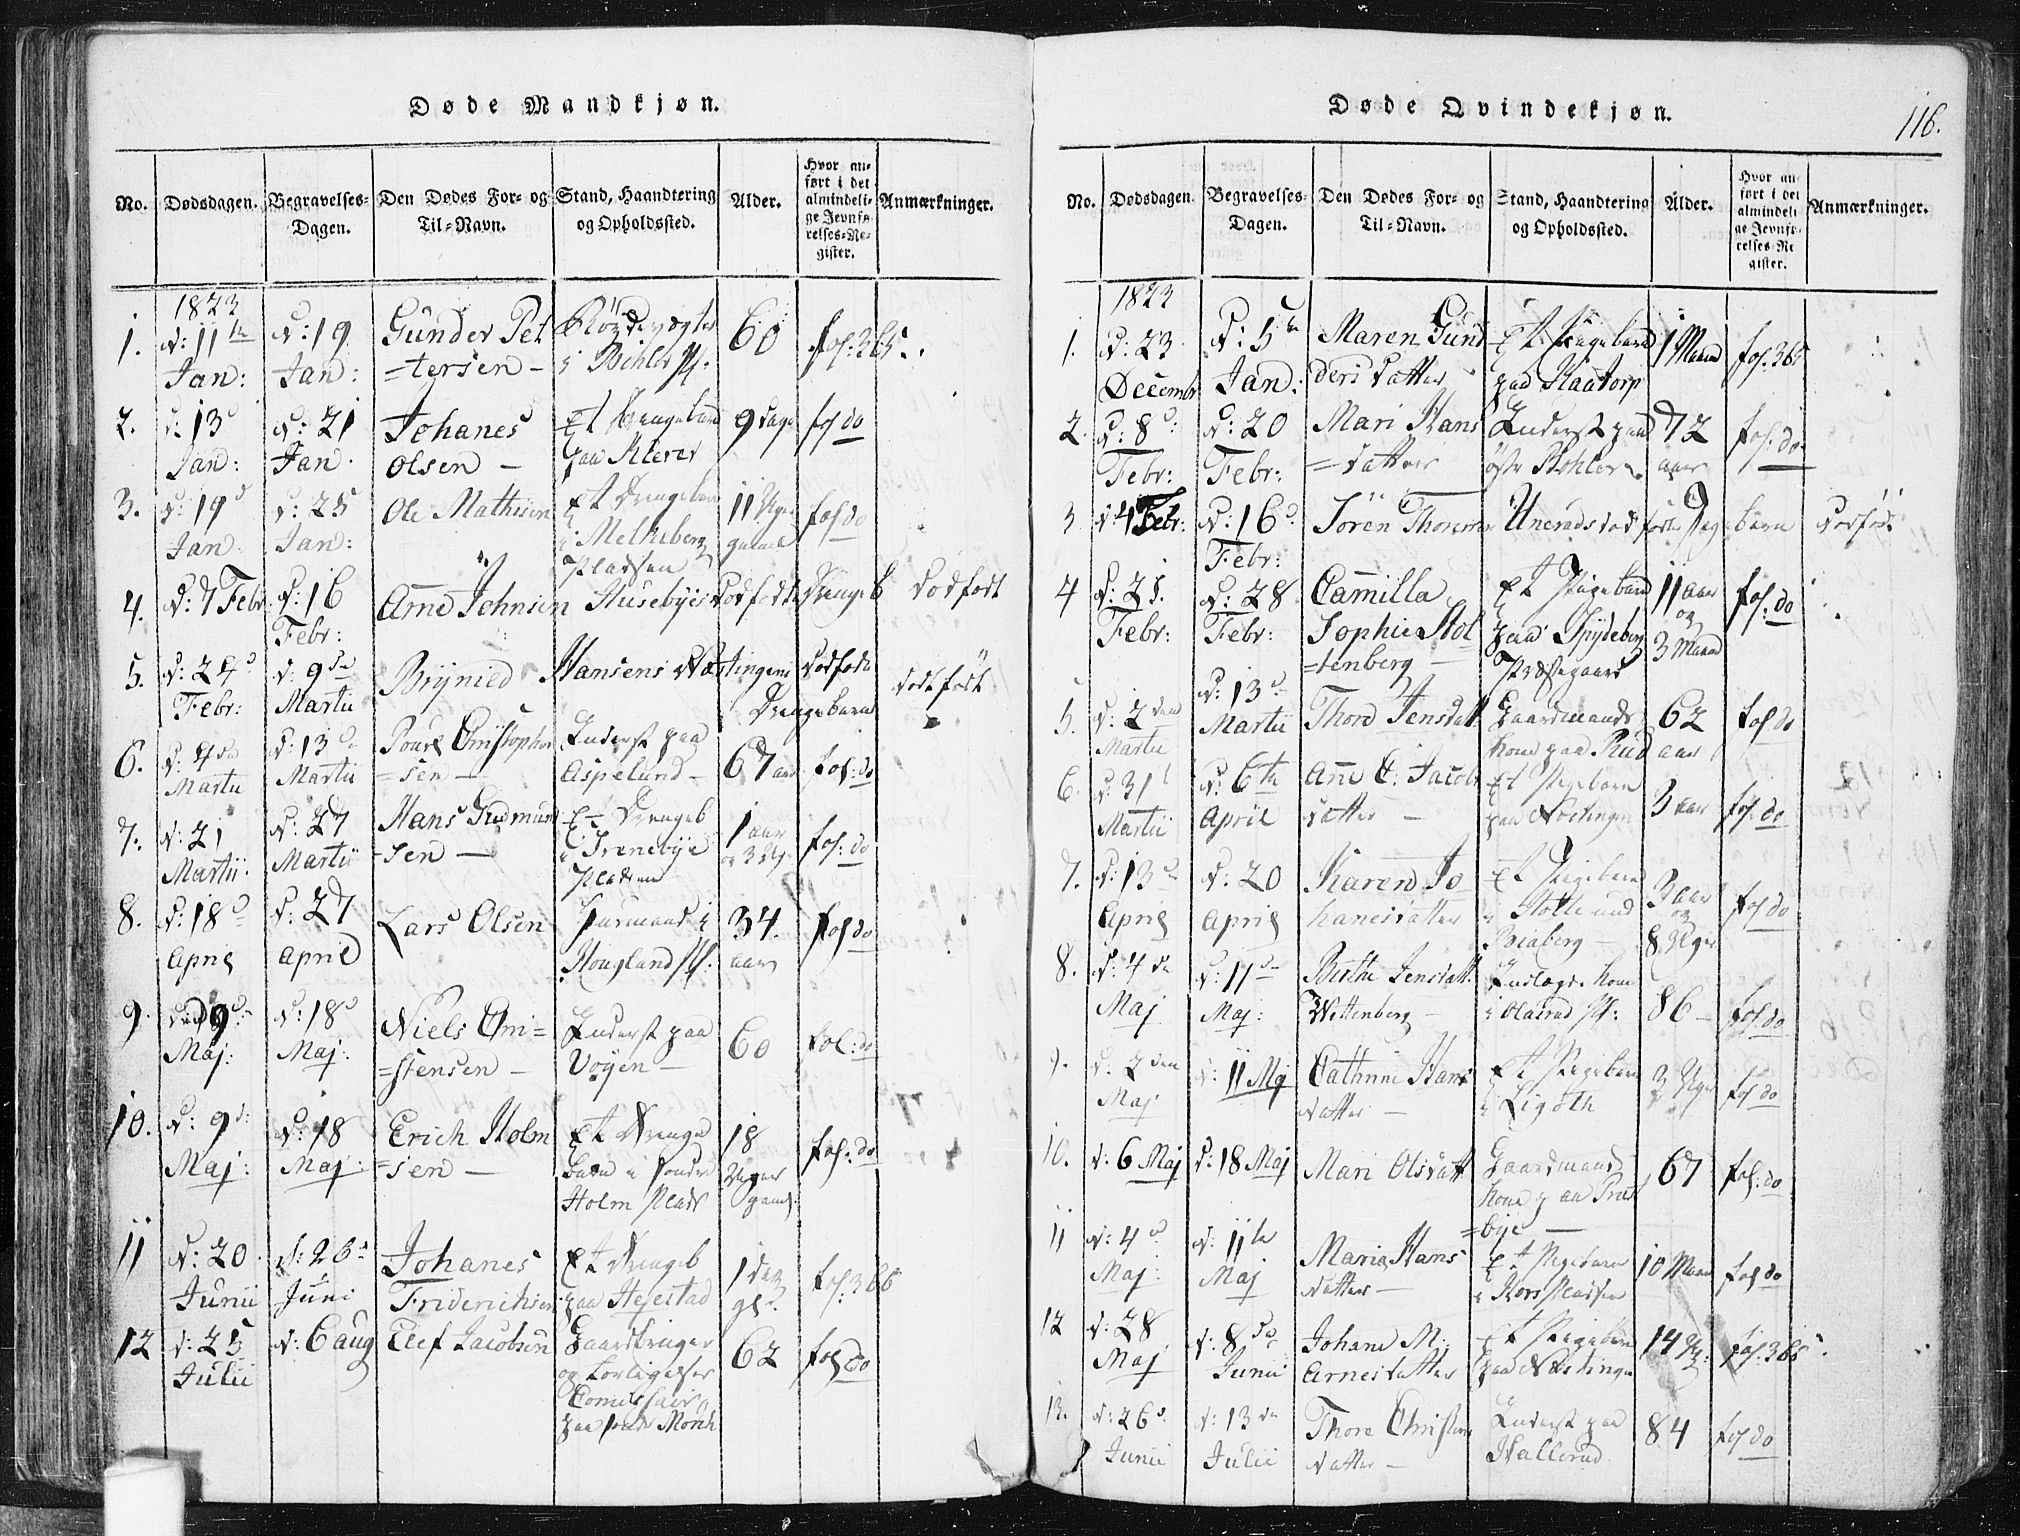 Døde Mandkjøn.
No.
Dødsdagen.
Begravelses-
Dagen.
Den Dødes For- og
Til-Navn.
Stand, Haandtering
og Opholdssted.
Alder.
Hvor an-
ført i det
almindeli-
ge Jevnfø-
relses-Re-
gister.
Anmærkninger.
1823
1. d: 11te Jan: d: 19 Jan: Gunder Pet
=tersen — 60 fol: 365.
2. d: 13d Jan: d: 21 Jan. Johanes
Olsen — Et Drengebarn
paa 9 Dage fol do
3. d: 19d Jan: d: 25 Jan: Ole Mathisen Et Drengebarn
i Melheberg
Pladsen 11 Uger
gamel fol do
4. d: 7 Febr d: 16 Febr: Arne Johnsen Husebyes Dødfødte Drengeb Dødfødt
5. d: 24d Febr: d: 9de Martii Brynild Hansens Næstingens Dødfødte
Drengebarn Dødfødt
6. d: 4de Martii d: 13de Martii Poul Christopher
=sen — Inderst paa
Aspelund — 67 aar fol: do
7. d: 21 Martii. d: 27 Martii Hans Gudmund
=sen — Et Drengeb
i Trenebye
Pladsen 1 aar
og 3 Ug. fol: do
8. d: 18d April d: 27 April Lars Olsen Huusmand i
Hougland Pl: 34.
aar fol do
9. den 9d Maj: d: 18d Maj: Niels Chri=
=stensen — Inderst paa
Vøyen — 60 fol: do
10. d: 9d: Maj: d: 18 Maj: Erich Holm
=sen — Et Drenge
barn i søndre
Holm Plads 18
Uger
gamel fol: do
11 d: 20 Junii d: 26d Juni Johanes
Friderichsen Et Drengeb
paa Hejestad 1 dag
gl. fol: 366
12 d: 25 Julii d: 6 aug Elef Jacobsen Gaardbruger
og Forligelses
Comissair
paa søndr Mørch 62 fol do
Døde Qvindekjøn.
116.
No.
Dødsdagen.
Begravelses-
Dagen.
Den Dødes For- og
Til-Navn.
Stand, Haandtering
og Opholdssted.
Alder.
Hvor an-
ført i det
almindeli-
ge Jevnfø-
relses-Re-
gister.
Anmærkninger.
1823
1. d: 23 Decembr d: 5te Jan: Maren Gund
ders datter Et Pigebarn
paa Skaatorp 1 Maaned fol. 365
2. d: 8d: Febr: d: 20 Febr: Mari Hans
=datter Inderst paa
østr Bohler 72
aar fol: do
3 d 4 Febr: d: 16d: Febr: Sören Thorems Uneruds dødfødte Pigebarn Dødfødt
4 d: 21. Febr: d: 28 Febr: Camilla
Sophie Stol
=tenberg — Et Pigebarn
paa Spydeberg
Præstegaard 11 aar
og
3 Maaned fol: do
5. d: 2den Martii d: 13d Martii Thore Jensdatt Gaardmands
kone paa Rud 62
aar fol do
6. d: 31t Martii d: 6te April Anne C: Jacobs
datter — Et Pigebarn
paa Næstingen 3 aar fol: do
7. d: 13de April d: 20 April Karen Jo
hanesdatter Et Pigebarn
i Stolte und
Biaberg — 3 aar
og
8 Uger fol do
8. d: 4de Maj d: 11de Maj: Birthe Jensdatt.
Wittenberg — Indlagt kone
i Olasrud Pl: 86 — fol do
9. d: 2den Maj d: 11 Maj Cathrine Hans
datter — Et Pigebarn
i Ligoth 3 Uger fol do
10. d: 6 Maj d: 18 Maj Mari Olsdatt Gaardmands
kone paa Præst
=bye — 67 fol: do
11 d: 4d Maj: d: 11te Maj Maria Hans
datter — Et Pigebarn
i Hors Pladsen 10 Maan fol do
12 d: 28 Maj d: 8de Junii Johane M:
Arnesdatter Et Pigebarn
paa Næstingen 14 Ug: fol. 365
13. d: 26d. Junii d: 13de Julii Thore Christens
datter — Inderst paa
Hallerud 84 fol do